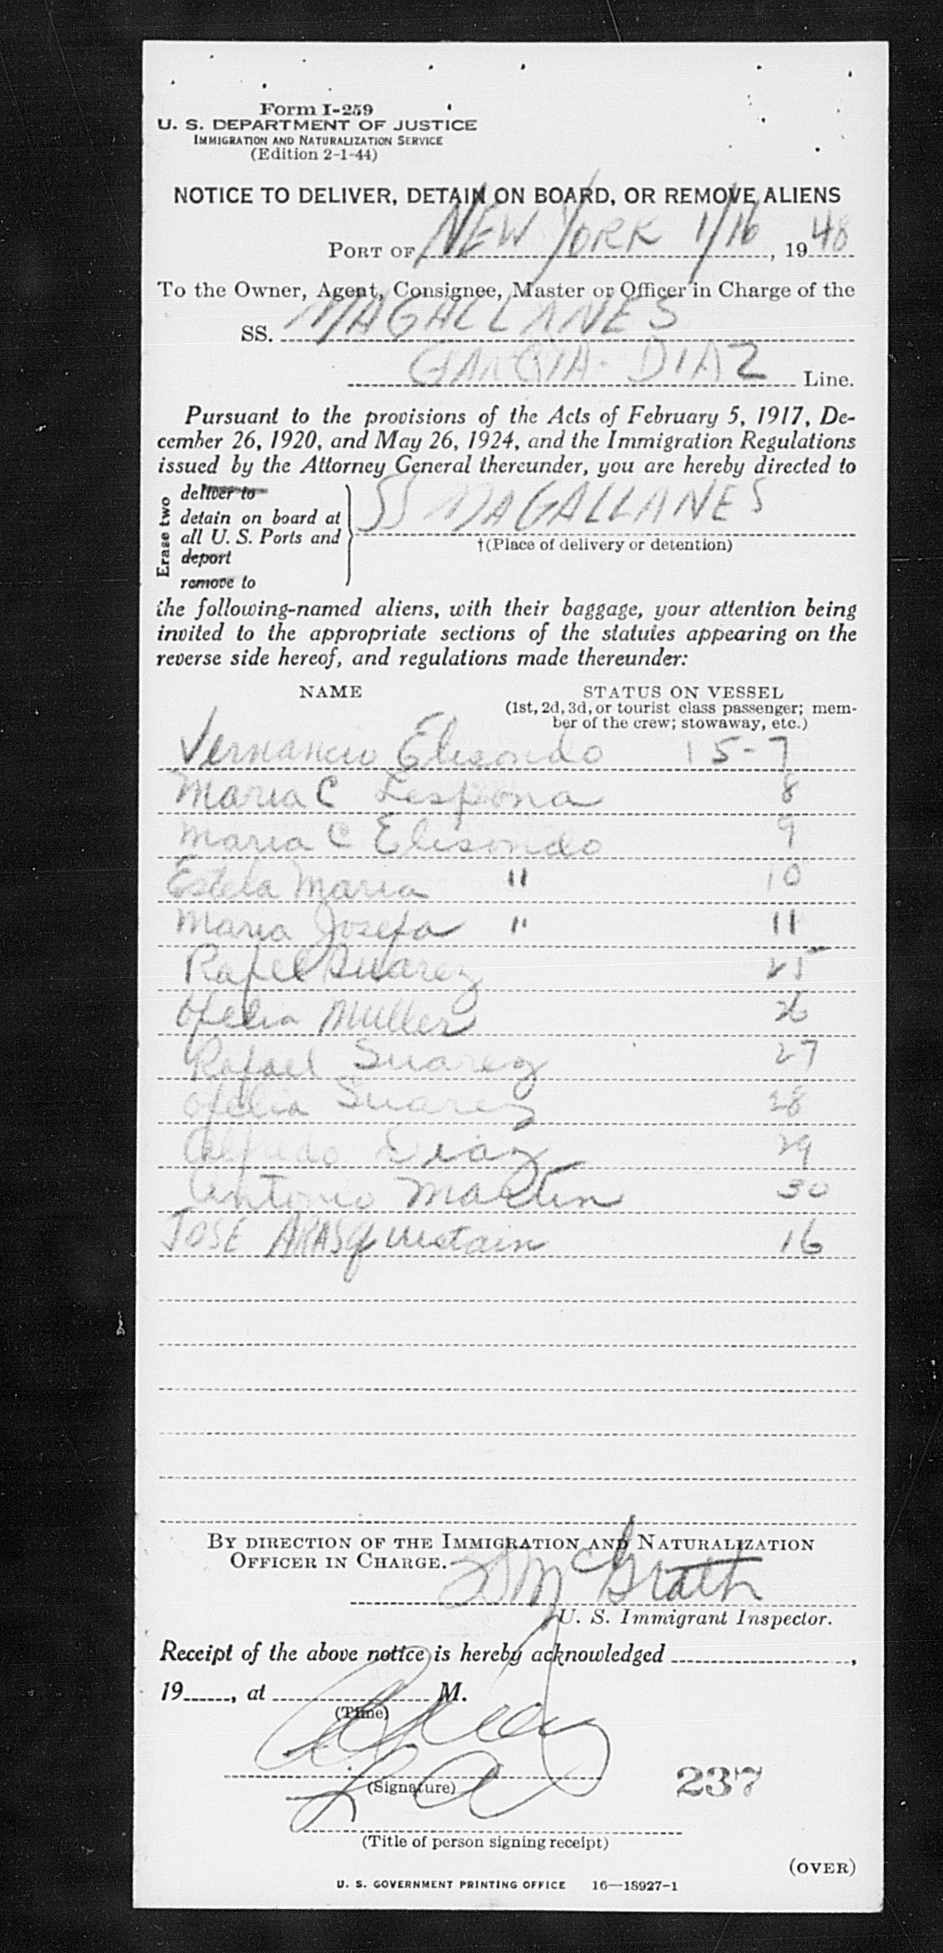 Form I-259
U. S. DEPARTMENT OF JUSTICE
IMMIGRATION AND NATURALIZATION SERVICE
(Edition 2-1-44)
NOTICE TO DELIVER, DETAIN ON BOARD, OR REMOVE ALIENS
PORT OF NEW YORK 1/16, 1948
To the Owner, Agent, Consignee, Master or Officer in Charge of the
SS. MAGALLANES
GARCIA-DIAZ Line.
Pursuant to the provisions of the Acts of February 5, 1917, De-
cember 26, 1920, and May 26, 1924, and the Immigration Regulations
issued by the Attorney General thereunder, you are hereby directed to
Erase two
deliver to
detain on board at
all U. S. Ports and
deport
remove to
SS MAGALLANES
†(Place of delivery or detention)
the following-named aliens, with their baggage, your attention being
invited to the appropriate sections of the statutes appearing on the
reverse side hereof, and regulations made thereunder:
NAME STATUS ON VESSEL
(1st, 2d, 3d, or tourist class passenger; mem-
ber of the crew; stowaway, etc.)
Vernancio Elisondo 15-7
Maria C Lespona 8
Maria C Elisondo 9
Estela Maria " 10
Maria Josefa " 11
Rafel Suarez 25
Ofelia Muller 26
Rafael Suarez 27
Ofelia Suarez 28
Alfredo Diaz 29
Antonio Martin 30
JOSE ARASquistain 16
BY DIRECTION OF THE IMMIGRATION AND NATURALIZATION
OFFICER IN CHARGE.
McGrath
U. S. Immigrant Inspector.
Receipt of the above notice is hereby acknowledged ,
19 , at M.
(Time)
(Signature)
237
(Title of person signing receipt)
(OVER)
U. S. GOVERNMENT PRINTING OFFICE 16—18927-1